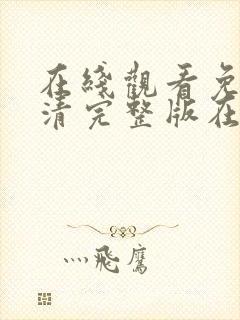 在綫觀看免
清完整版在
灬飛鷹